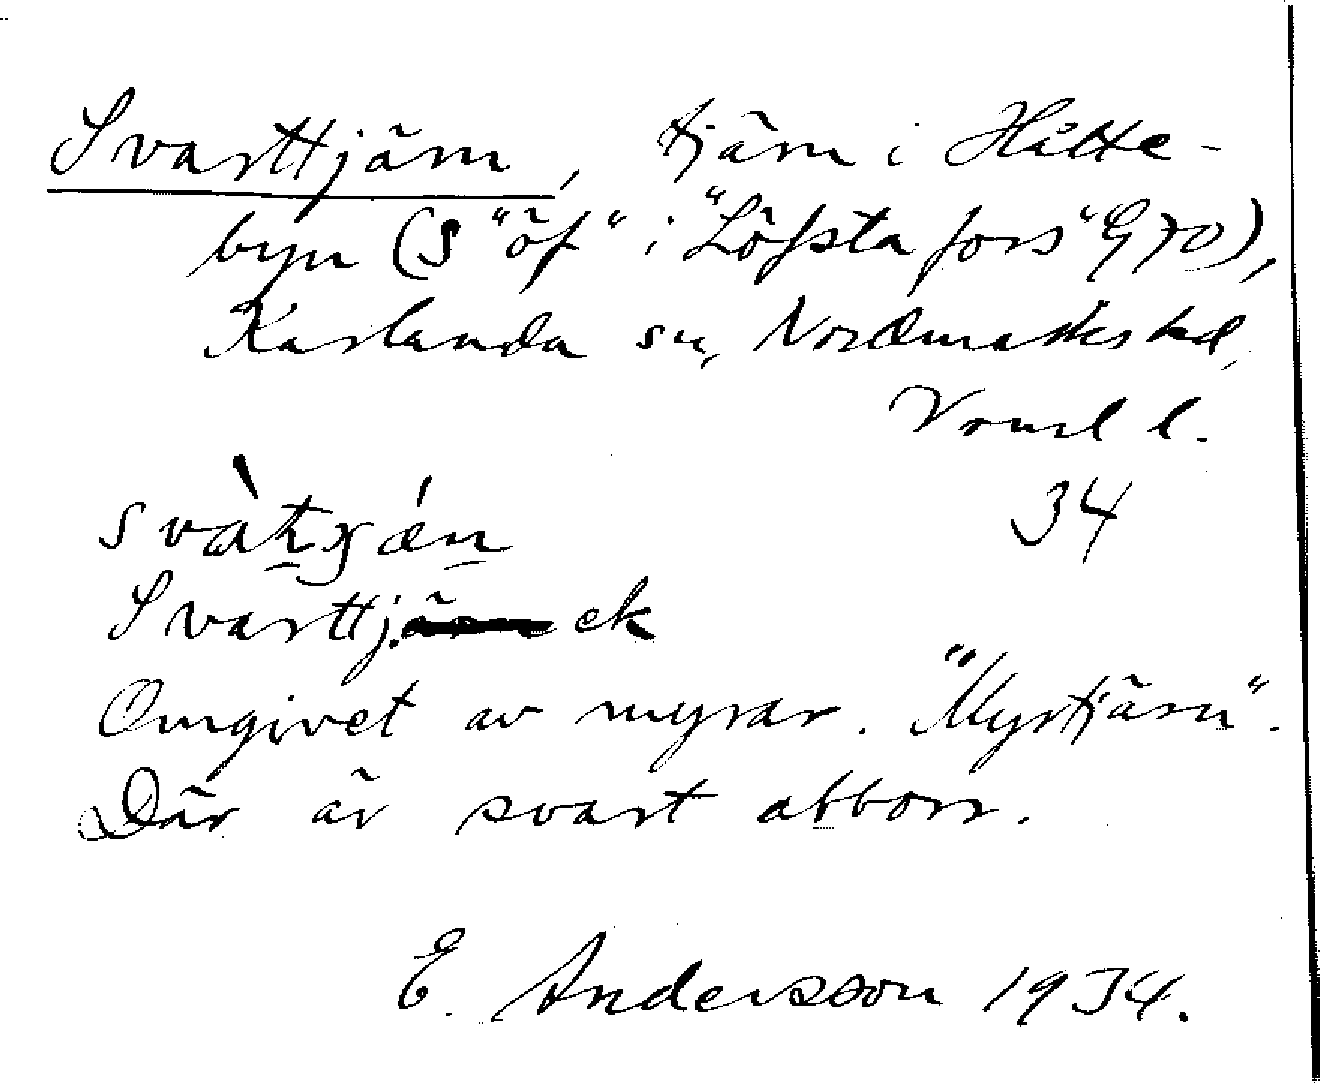 Svarttjärn, tjärn i Hålte-
byn (S "öf" i "Löfsta fors" G 70),
Karlanda sn, Nordmarks hd,
Vrml l.
34
Svarttj. ek
Omgivet av myrar. "Myrtjärn".
Där är svart abborr.
E. Andersson 1934.